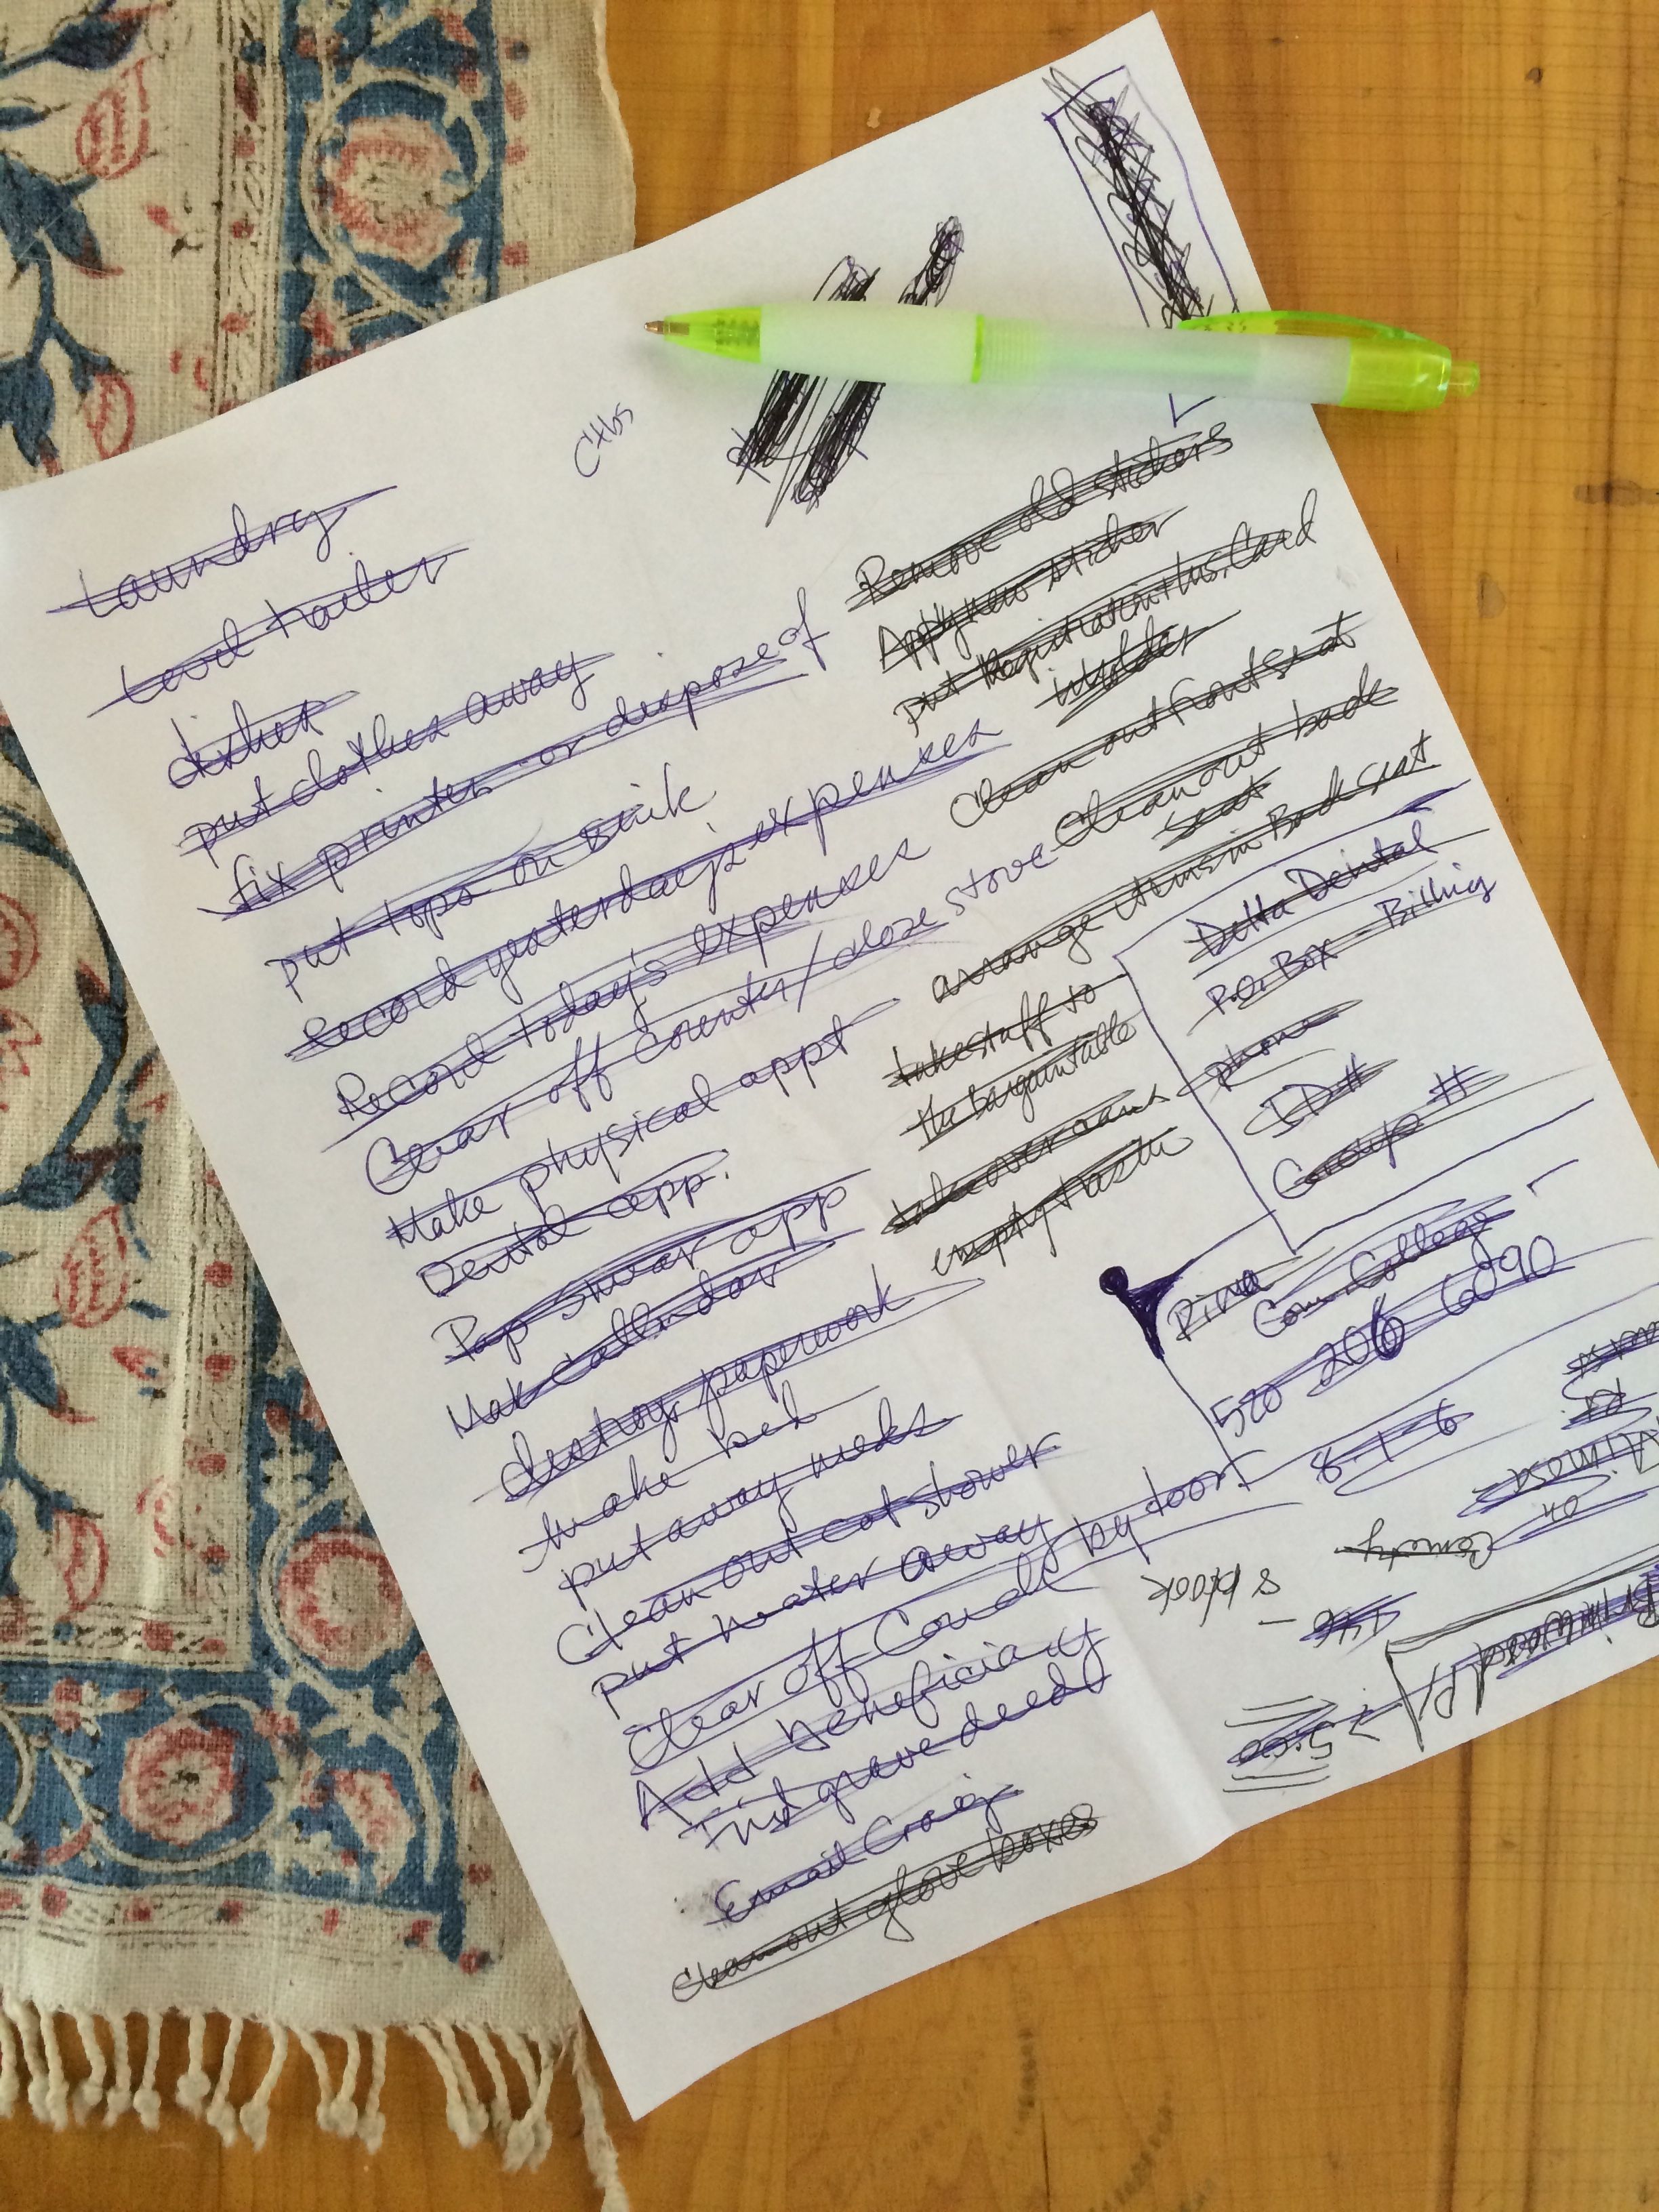 Laundry
Load trailer
dishes
put clothes away
fix printer or dispose of
put tops on
Record yesterday's expenses
Record Today's expenses
Clear off counter/close stove
Make physical appt
Dental app.
Pap smear app
Mak Callendar
destroy paperwork
make bed
put away meds
Clean out cat shower
put heater away
Clear off Couch by door
Add beneficiary
Find grave deed
Email Craig
Clean out glove boxes
Remove old stickers
Apply new sticker
put Registration + Ins. Card
in holder
Clean out front seat
Clean out back
seat
arrange items in Back seat
take stuff to
the bargain table
empty trash
Delta Dental
P.O. Box - Billing
phone
ID#
Group #
Rina
Com. College
520 206 6090
8-1-6
Rd.
Mimosa
on